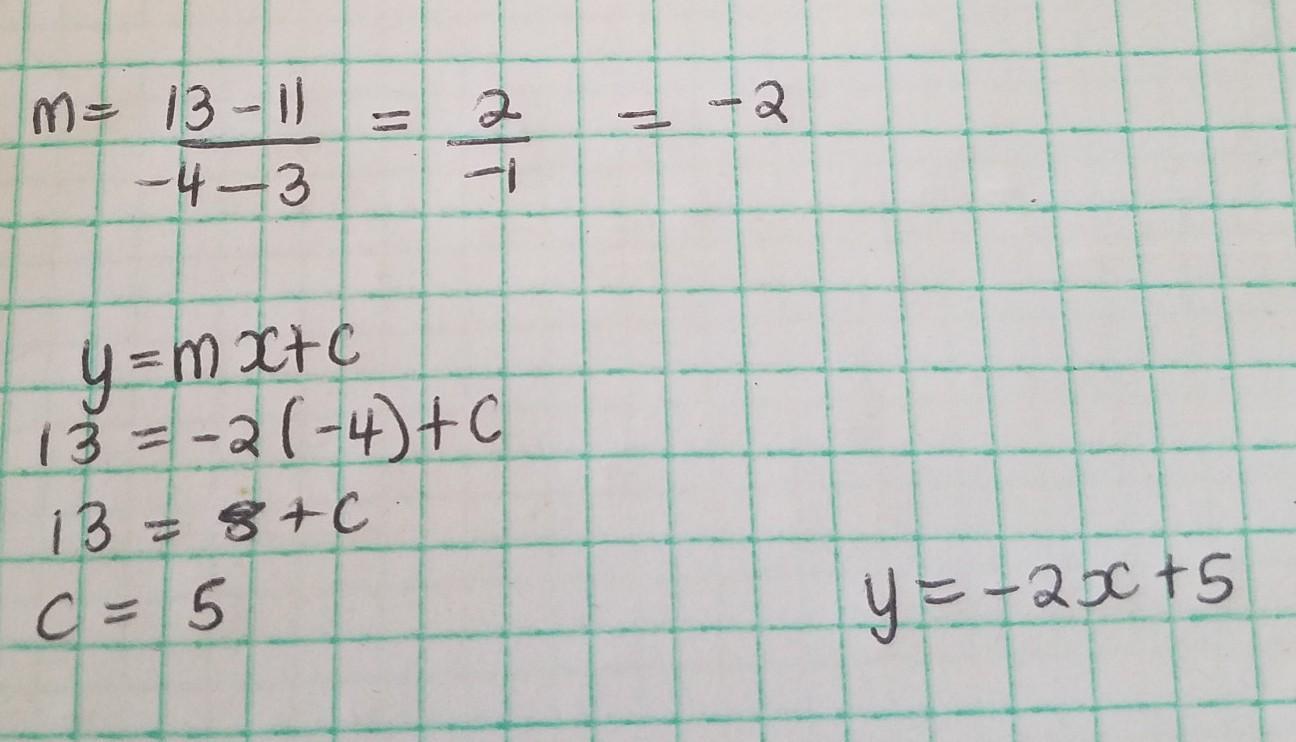 m = 13 - 11 / -4 - 3 = 2 / -1 = -2
y = mx + c
13 = -2(-4) + c
13 = 8 + c
c = 5
y = -2x + 5